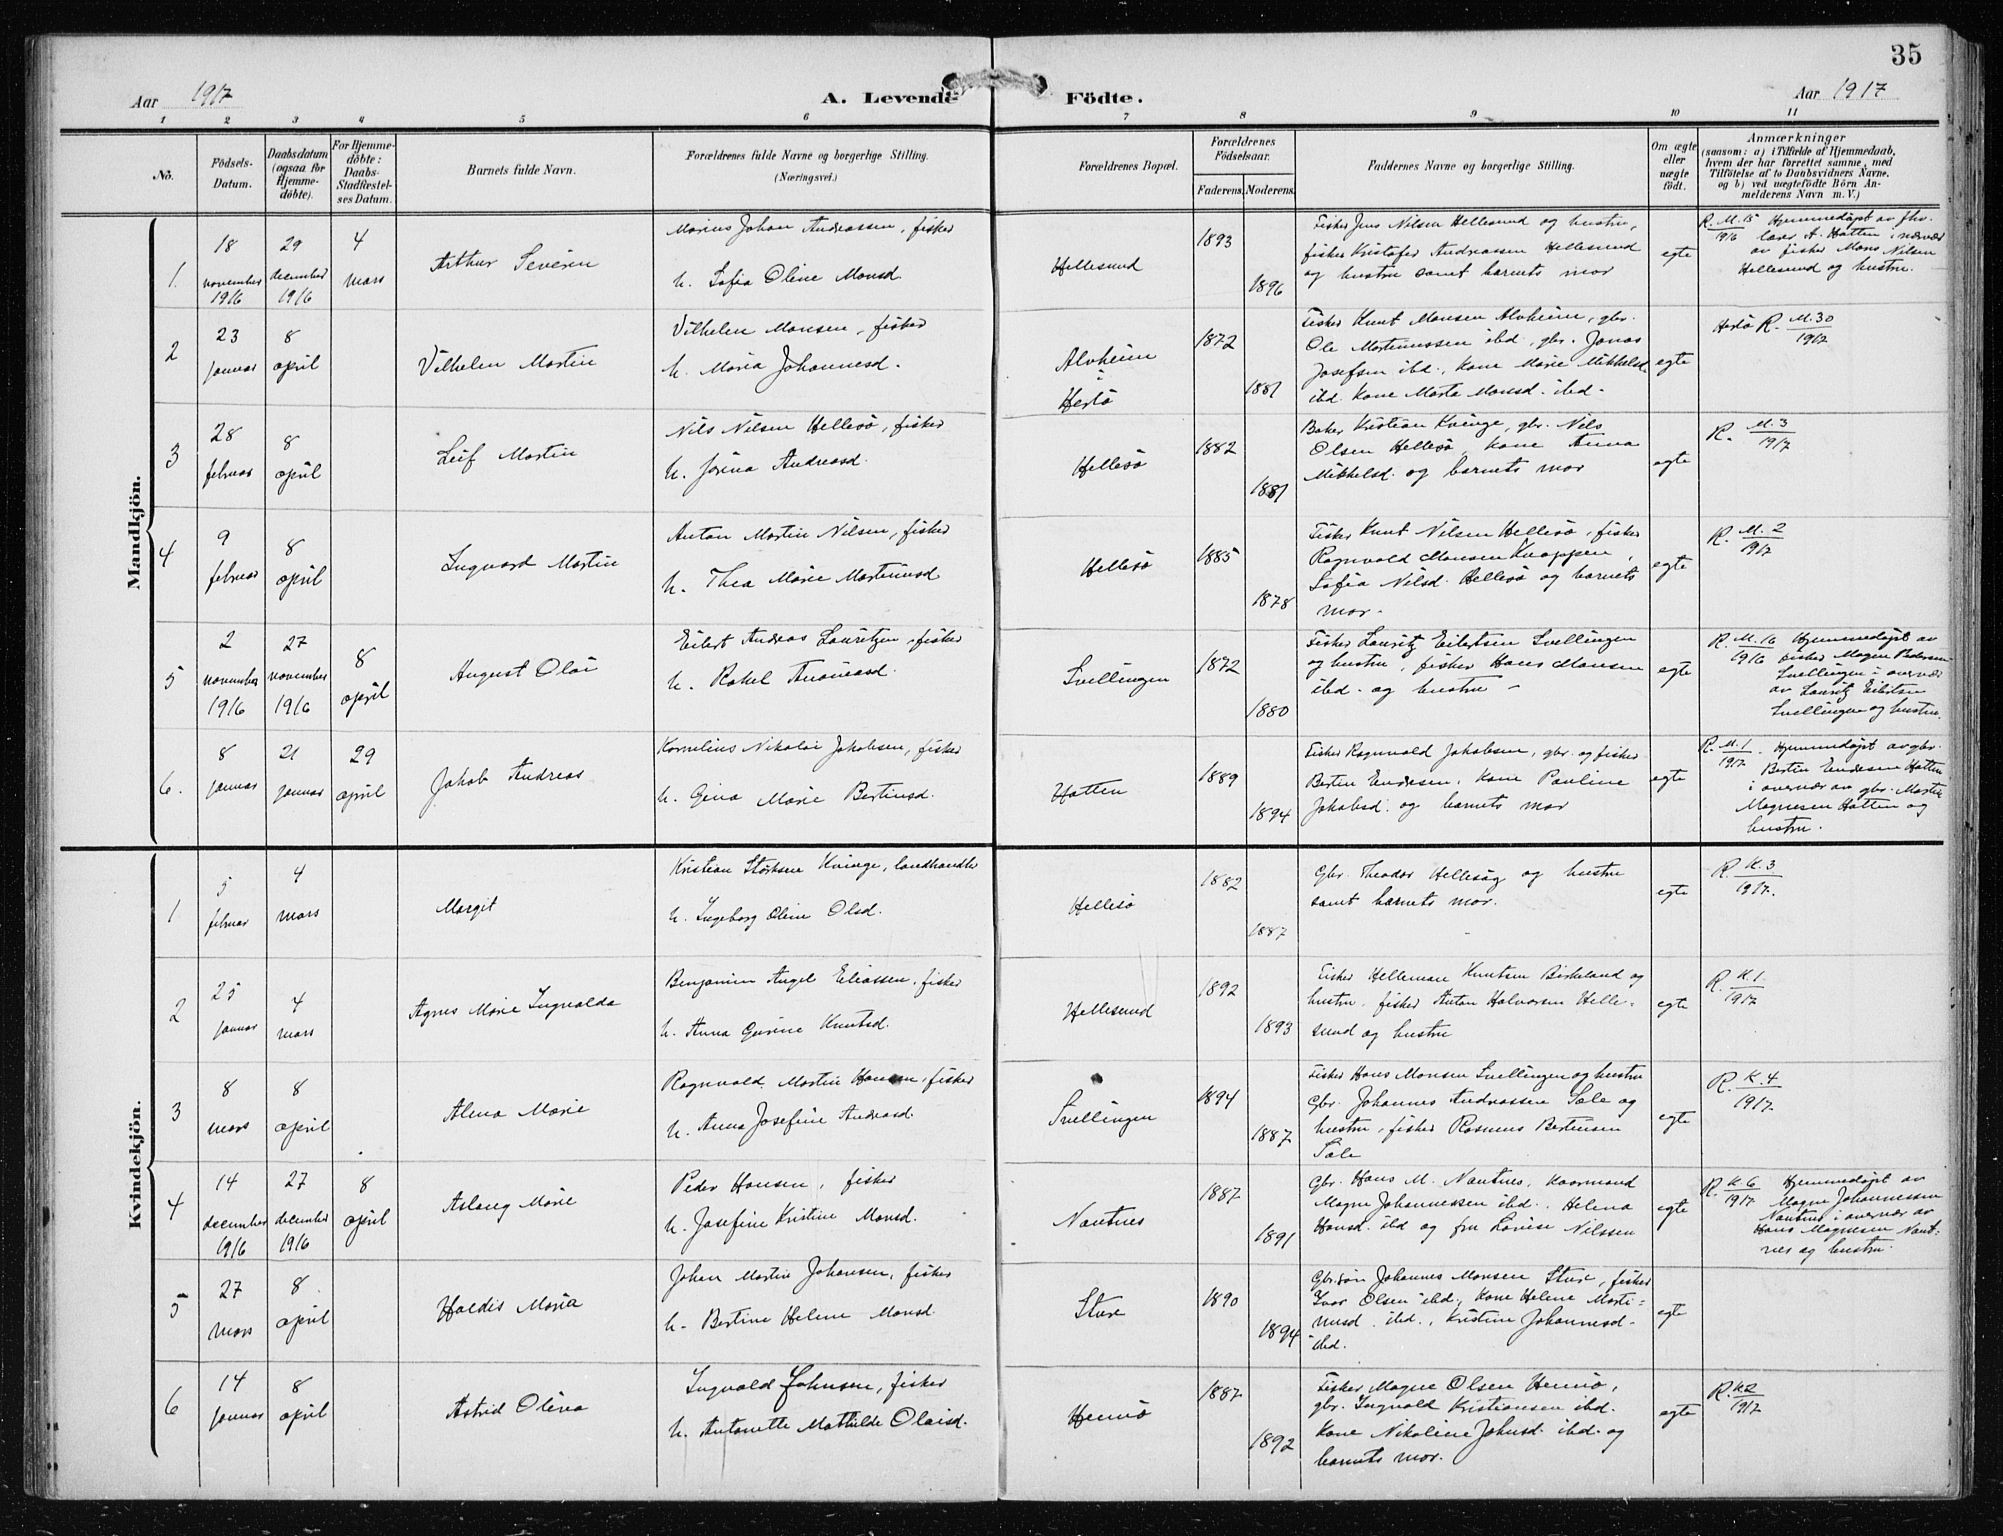 35
Aar 1917 A. Levende Födte. Aar 1917
1 2 3 4 5 6 7 8 9 10 11
No.
Födsels-
Datum.
Daabsdatum
(ogsaa for
Hjemme-
döbte).
For Hjemme-
döbte:
Daabs-
Stadfæstel-
ses Datum.
Barnets fulde Navn.
Forældrenes fulde Navne og borgerlige Stilling.
(Næringsvei.)
Forældrenes Bopæl.
Forældrenes
Födselsaar.
Faderens. Moderens.
Faddernes Navne og borgerlige Stilling.
Om ægte
eller
uægte
födt.
Anmærkninger
(saasom: a) i Tilfælde af Hjemmedaab,
hvem der har forrettet samme, med
Tilföielse af to Daabsvidners Navne,
og b) ved uægtefödte Börn An-
melderens Navn m. V.)
Mandkjön.
1.
18
november
1916
29
december
1916
4
mars
Arthur Severin
Marius Johan Andreassen, fisker
h. Sofia Oline Monsd.
Hellesund
1893
1896
Fisker Jens Nilsen Hellesund og hustru,
fisker Kristofer Andreassen Hellesund
og hustru samt barnets mor
egte
R. M. 15 Hjemmedøpt av fhv.
1916 lærer A. Hatten i nærvær
av fisker Mons Nilsen
Hellesund og hustru.
2
23
januar
8
april
Vilhelm Martin
Vilhelm Monsen, fisker
h. Maria Johannesd.
Alvheim
i
Herlö
1872
1881
Fisker Knut Monsen Alvheim, gbr.
Ole Martinussen ibd, gbr. Jonas
Josefsen ibd., kone Marie Mikkelsd
ibd. kone Marta Monsd. ibd.
egte
Herlö R. M. 30
1917
3
28
februar
8
april
Leif Martin
Nils Nilsen Hellesö, fisker
h. Jorina Andreasd.
Hellesö
1882
1881
Baker Kristian Kvinge, gbr. Nils
Olsen Hellesö, kone Anna
Mikkelsd. og barnets mor
egte
R. M. 3
1917
4
9
februar
8
april
Ingvard Martin
Anton Martin Nilsen, fisker
h. Thea Marie Martinusd
Hellesö
1885
1878
Fisker Knut Nilsen Hellesö, fisker
Ragnvald Monsen Knappen,
Sofia Nilsd. Hellesö og barnets
mor.
egte
R. M. 2
1917
5
2
november
1916
27
november
1916
8
april
August Olai
Eilert Andreas Lauritzen, fisker
h. Rakel
Svellingen
1872
1880
Fisker Lauritz Eilertsen Svellingen
og hustru, fisker Hans Monsen
ibd. og hustru
egte
R. M. 16 Hjemmedøpt av
1916 fisker Magne Pedersen
Svellingen i overvær
av Lauritz Eilertsen
Svellingen og hustru.
6.
8
januar
21
januar
29
april
Jakob Andreas
Kornelius Nikolai Jakobsen, fisker
h. Gina Marie Bertinsd.
Hatten
1889
1894
Fisker Ragnvald Jakobsen, gbr. og fisker
Bertin Endresen, kone Pauline
Jakobsd. og barnets mor
egte
R. M. 1 Hjemmedøpt av gbr.
1917 Bertin Endresen Hatten
i overvær av gbr. Martin
Magnesen Hatten og
hustru.
Kvindekjön.
1
5
februar
4
mars
Margit
Kristian Størksen Kvinge, landhandler
h. Ingeborg Oline Olsd.
Hellesö
1882
1887
Gbr. Theodor Hellesøg og hustru
samt barnets mor.
egte
R. K. 3
1917.
2
25
januar
4
mars
Agnes Marie Ingvalda
Benjamin Angel Eliassen, fisker
h. Anna Gurine Knutsd.
Hellesund
1892
1893
Fisker Hellemar Knutsen Birkeland og
hustru, fisker Anton Halvorsen Helle-
sund og hustru
egte
R. K. 1
1917
3
8
mars
8
april
Alma Marie
Ragnvald Martin Hansen, fisker
h. Anna Josefine Andreasd.
Svellingen
1894
1887
Fisker Hans Monsen Svellingen og hustru
Gbr. Johannes Andreassen Sæle og
hustru, fisker Rasmus Bertinsen
Sæle
egte
R. K. 4
1917.
4
14
december
1916
27
december
1916
8
april
Aslaug Marie
Peder Hansen, fisker
h. Josefine Kristine Monsd.
Nautnes
1887
1891
Gbr. Hans M. Nautnes,
Magne Johannessen ibd., Helena
Hansd. ibd og fru Lovise Nilssen
egte
R. K. 6 Hjemmedøpt av
1917 Magne Johannessen
Nautnes i overvær av
Hans Magnesen Naut-
nes og hustru.
5
27
mars
8
april
Haldis Maria
Johan Martin Johansen, fisker
h. Bertine Helene Monsd
Sture
1890
1894
Gbr.søn Johannes Monsen Sture, fisker
Ivar Olsen ibd., kone Helene Marti-
nusd. ibd., Kristine Johannesd.
ibd.
egte
6
14
januar
8
april
Astrid Olena
Ingvald Johnsen, fisker
h. Antonette Mathilde Olaisd.
Hernö
1887
1892
Fisker Magne Olsen Hernö,
gbr. Ingvald Kristiansen ibd.
Kone Nikoline Johnsd. ibd. og
barnets mor.
egte
R. K2
1917